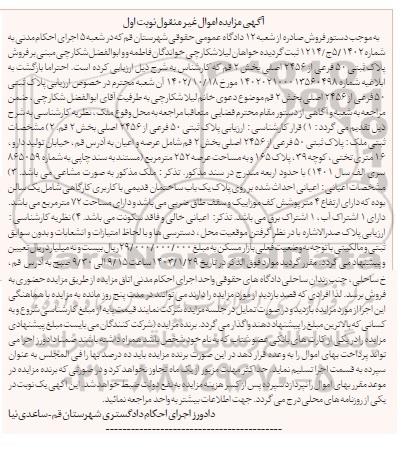 آگهی مزایده اموال غیر منقول نوبت اول
به موجب دستور فروش صادره از شعبه ۱۲ دادگاه عمومی حقوقی شهرستان قم که در شعبه ۵ اجرای احکام مدنی به
شماره ۱۴۰۲/۵ ج/۱۲۱۴ ثبت گردیده خواهان لیلا شکارچی خواندگان فاطمه و ابوالفضل شکارچی مبنی بر فروش
پلاک ثبتی ۵۰ فرعی از ۲۴۵۶ اصلی بخش ۲ قم که کارشناس به شرح ذیل ارزیابی کرده است. احتراما بازگشت به
ابلاغیه شماره ۱۴۰۲۰۲۱۰۰۰۱۳۵۶۰۴۹۸ مورخ ۱۴۰۲/۱۰/۱۸ آن شعبه محترم در خصوص ارزیابی پلاک ثبتی
۵۰ فرعی از ۲۴۵۶ اصلی بخش ۲ قم موضوع دعوی خانم لیلا شکارچی به طرفیت آقای ابوالفضل شکارچی، ضمن
مراجعه به شعبه و آگاهی از دستور مقام محترم قضایی متعاقبا مراجعه به محل وقوع ملک، نظریه کارشناسی به شرح
ذیل تقدیم می گردد: ۱) قرار کارشناسی: ارزیابی پلاک ثبتی ۵۰ فرعی از ۲۴۵۶ اصلی بخش ۲ قم. ۲) مشخصات
ثبتی ملک: پلاک ثبتی ۵۰ فرعی از ۲۴۵۶ اصلی بخش ۲ قم شامل عرصه و اعیان به آدرس قم، خیابان تولید دارو،
۱۶ متری تختی، کوچه ۳۹، پلاک ۱۶۵ و به مساحت عرصه ۲۵۲ مترمربع (مستند به سند چاپی به شماره ۸۶۵۰۵۹
سری الف سال ۱۴۰۱) با حدود اربعه مندرج در سند مذکور. تذکر: ملک مذکور به صورت مشاعی می باشد. ۳)
مشخصات اعیانی: اعیانی احداث شده بر روی پلاک یک باب ساختمان قدیمی با کاربری کارگاهی شامل یک سالن
بوده که دارای ارتفاع ۴ متر پوشش کف موزاییک و سقف طاق ضربی می باشد و دارای مساحت ۷۲ مترمربع می باشد.
دارای ۱ اشتراک آب، ۱ اشتراک برق می باشد. تذکر: اعیانی خالی و فاقد سکونت می باشد. ۴) نظریه کارشناسی:
ارزیابی پلاک صدرالاشاره با در نظر گرفتن موقعیت محل، دسترسی ها و با لحاظ امتیازات و انشعابات و بدون سوابق
ثبتی و مالکیتی با توجه به وضعیت فعلی بازار مسکن به مبلغ ۲۹/۰۰۰/۰۰۰/۰۰۰ ریال بیست و نه میلیارد ریال تعیین
و پیشنهاد می گردد. مقرر گردید موارد فوق الذکر در تاریخ ۱۴۰۳/۱/۲۹ ساعت ۹/۱۵ الی ۹/۳۰ صبح به آدرس قم،
خ ساحلی، جنب زندان ساحلی دادگاه های حقوقی واحد اجرای احکام مدنی اتاق مزایده از طریق مزایده حضوری به
فروش برسد. لذا افرادی که قصد بازدید از مورد مزایده را دارند می توانند در مدت پنج روز مانده به مزایده با هماهنگی
این اجرا از مورد مزایده بازدید و در صورت تمایل در جلسه مزایده شرکت نمایند قیمت پایه از مبلغ کارشناسی شروع و به
کسانی که بالاترین مبلغ را پیشنهاد دهند واگذار می گردد. برنده مزایده (شرکت کنندگان می بایست مبلغ پیشنهادی
مزایده را در یکی از کارت های بانکی عضو شتاب که به نام خود شخص باشد، همراه داشته باشند ضمنا دادورز اجرا می
تواند پرداخت بهای اموال را به وعده قرار دهد در این صورت برنده مزایده باید ده درصد بها را فی المجلس به عنوان
سپرده به قسمت اجرا تسلیم نماید. حداکثر مهلت مزبور از یک ماه تجاوز نخواهد کرد و در صورتی که برنده مزایده در
موعد مقرر بهای اموال را نپردازد سپرده پس از کسر هزینه مزایده به نفع دولت ضبط خواهد شد. این آگهی یک نوبت در
یکی از روزنامه های محلی درج می گردد. جهت اطلاعات بیشتر به واحد مراجعه نمائید.
دادورز اجرای احکام دادگستری شهرستان قم - ساعدی نیا